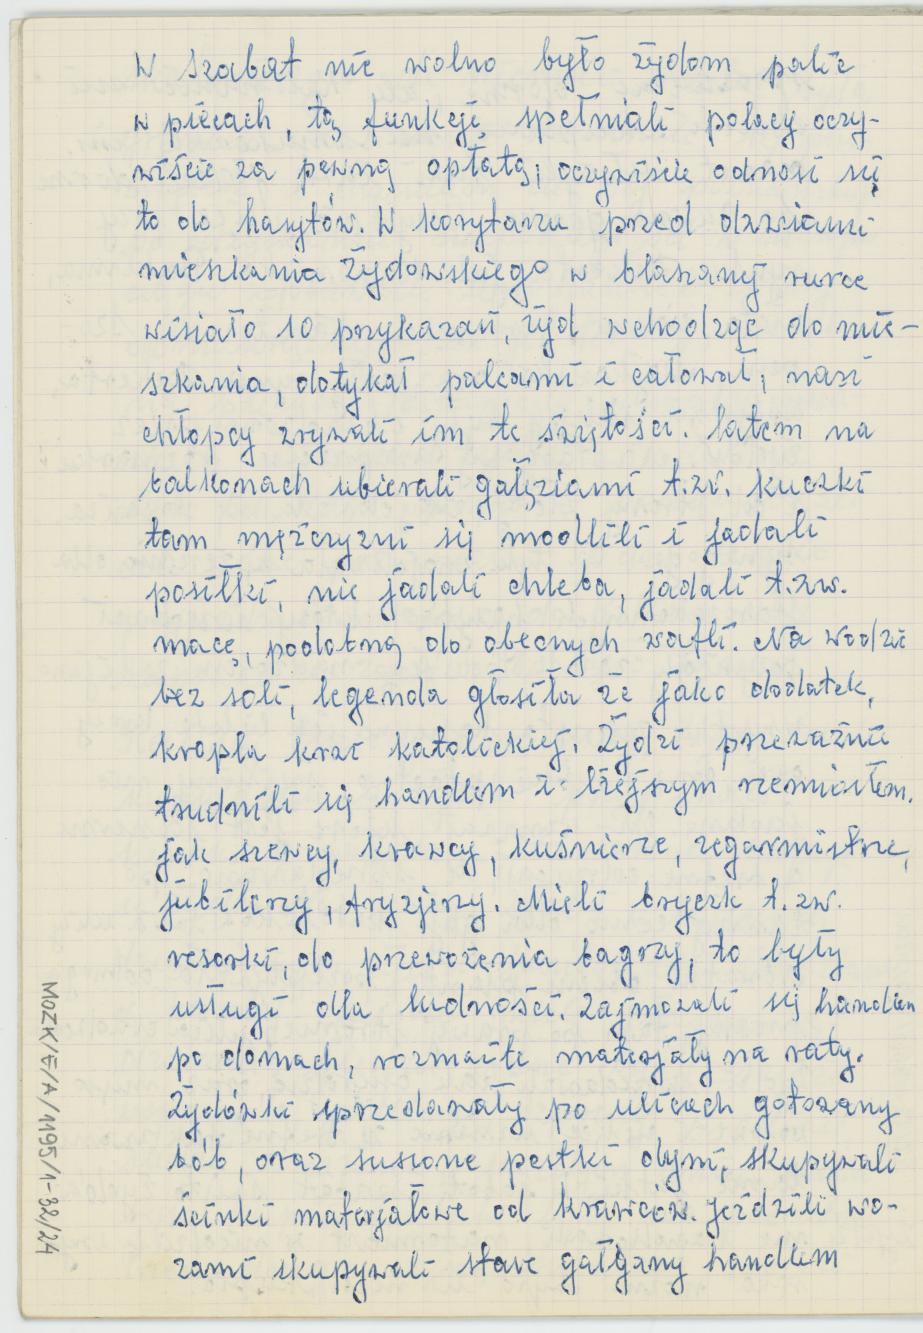 W szabat nie wolno było żydom palić
w piecach, tą funkcję spełniali polacy oczy-
wiście za pewną opłatą; oczywiście odnosi się
to do hasytów. W korytarzu przed drzwiami
mieszkania Żydowskiego w blaszanej rurce
wisiało 10 przykazań, żyd wchodząc do mie-
szkania, dotykał palcami i całował; nasi
chłopcy zrywali im te świętości. latem na
balkonach ubierali gałęziami t.zw. kuczki
tam mężczyzni się modlili i jadali
posiłki, nie jadali chleba, jadali t.zw.
macę, podobną do obecnych wafli. Na wodzie
bez soli, legenda głosiła że jako dodatek,
kropla krwi katolickiej. Żydzi przeważnie
trudnili się handlem i lżejszym rzemiosłem.
jak szewcy, krawcy, kuśnierze, zegarmistrze,
jubilerzy, fryzjerzy. Mieli bryczk t.zw.
resorki, do przewożenia bagrzy, to były
usługi dla ludności. Zajmowali się handlem
po domach, rozmaite materjały na raty.
Żydówki sprzedawały po ulicach gotowany
bób, oraz suszone pestki dyni, skupywali
ścinki materjałowe od krawców. jeździli wo-
zami skupywali stare gałgany handlem
MOZK/E/A/1195/1-32/24